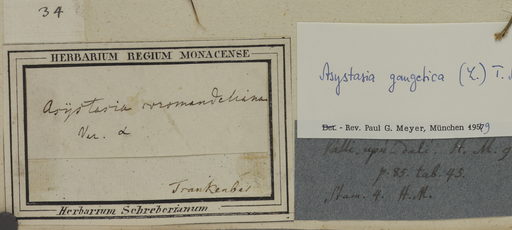 34
HERBARIUM REGIUM MONACENSE
Asÿstasia coromandeliana
Var. α
Trankenbar
Herbarium Schreberianum
Asystasia gangetica (L.) T.
Det. - Rev. Paul G. Meyer, München 1979
H. M. 9
p. 85. tab. 43.
Stam. 4. H. M.